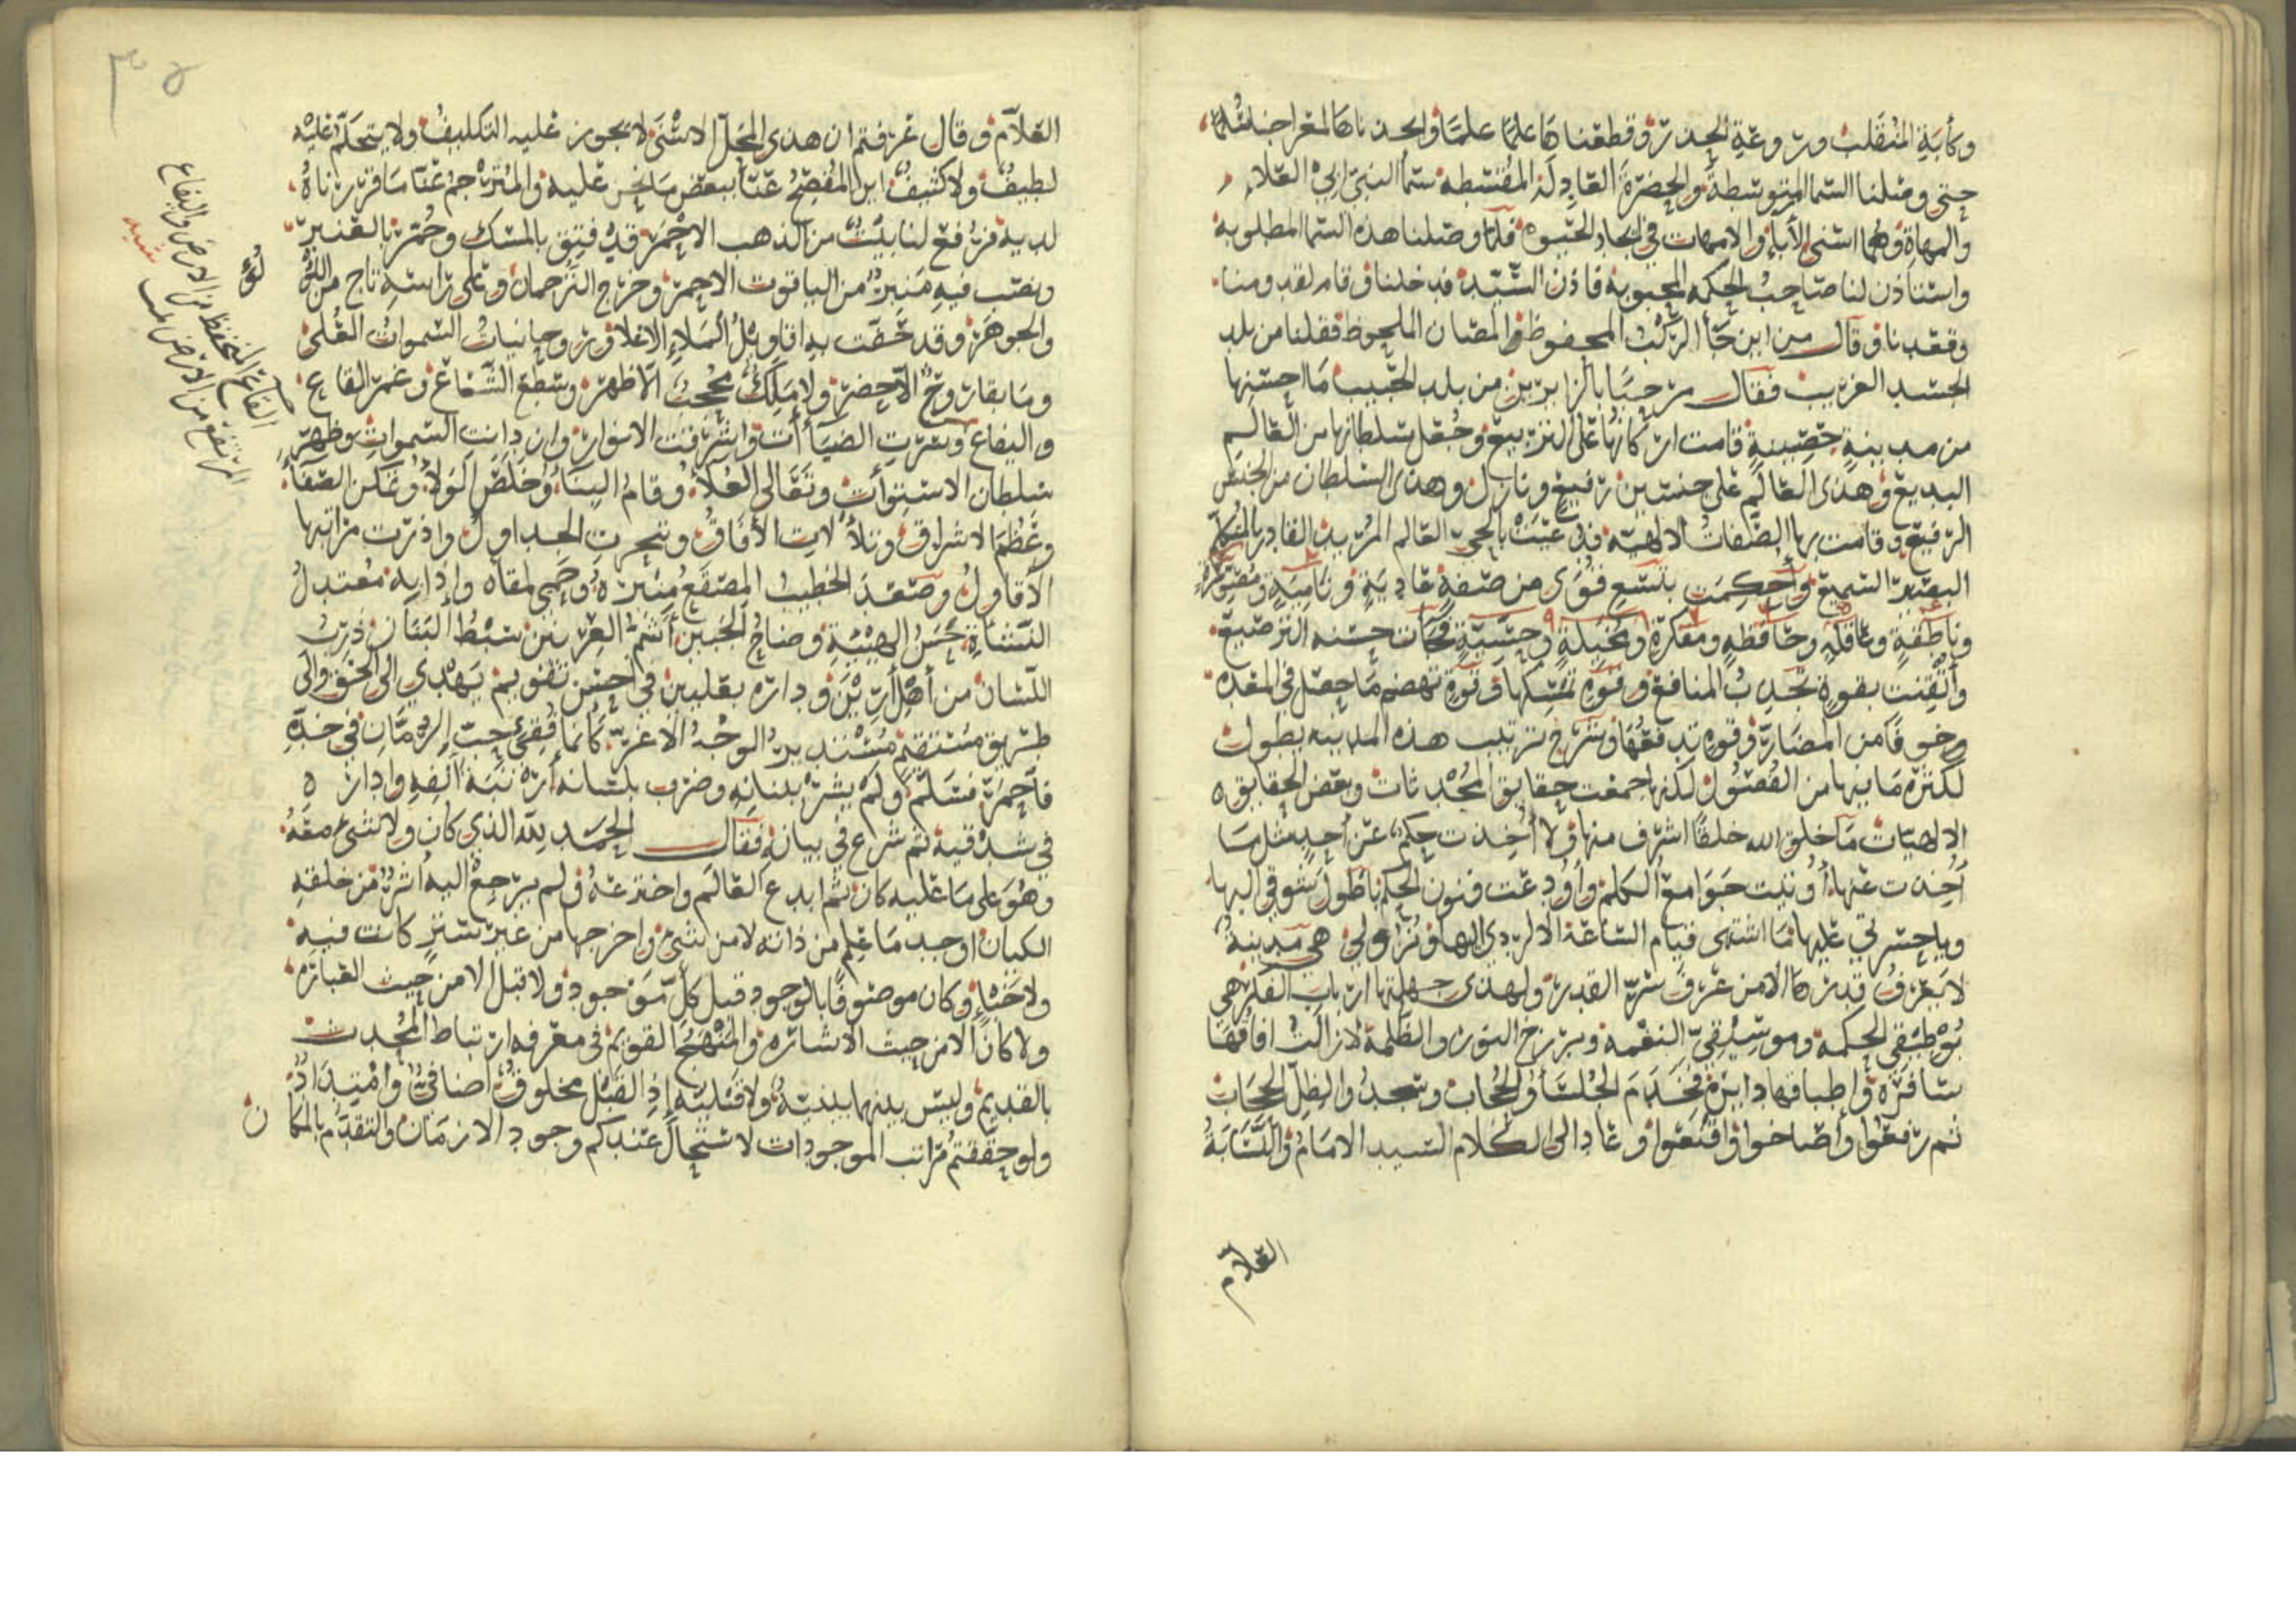 وكأبة المنقلب وروعة الجدر وقطعناها علما علما واتخذناها لمعراجنا سلما
حتى وصلنا السما المتوسطة والحضرة العادلة المقسطه سما النبي ابي العلاء
والمهاة وهما اسنى الأباء والامهات في ايجاد الحيوة فلما وصلنا هذه السما المطلوبة
واستاذن لنا صاحب الحكمة المحبوبة فاذن السيد فدخلنا وقام لقدومنا
وقعدنا وقال من اين جاء الركب المحفوظ والمصان الملحوظ فقلنا من بلد
الجسد الغريب فقال مرحبًا بالزايرين من بلد الحبيب ما احسنها
من مدينة حصينة قامت اركانها على التربيع وجعل سلطانها من العالم
البديع وهذى العالم على جنسين رفيع ونازل وهذى السلطان من الجنس
الرفيع وقامت بها الصفات الالهية فدعيت بالحي العالم المريد القادر المتكلم
البصير السميع وأحكمت بتسع قوى من صنعة غادية ونامية ومصورة
وناطقة وعاقلة وحافظه ومفكرة ومخيلة وحسية فجآت حسنه الترصيع
وأتقنت بقوة تجذب المنافع وقوة تمسكها وقوة تهضم ما حصل في المعده
وخوفا من المضار وقوة تدفعها وشرح ترتيب هذه المدينه يطول
لكثرة ما فيها من الفصول لكنها جمعت حقايق المحدثات وبعض الحقايق
الالهيات ما خلق الله خلقا اشرف منها ولا أخذت حكم عن أحد مثل ما
أخذت عنها أوتيت جوامع الكلم وأودعت فنون الحكم فيا طول شوقي اليها
ويا حسرتي عليها ما اشتهى قيام الساعة الا لردي الها ونزولي هي مدينة
لا يعرف قدرها الا من عرف سر القدر ولهذى جهلتها ارباب الفكر هي
بوطيقى الحكمة وموسيقي النغمه وبرزخ النور والظلمة لا زالت افاقها
سافرة واطباقها دايرة فخدم الجلسأ والحجاب وسجد والظل الحجاب
ثم رفعوا وأصاخوا واقنعوا وعاد الى الكلام السيد الامام والنسابة
العلام
العلام وقال عرفتم ان هذى المحل الاسنى لا يجوز عليه التكليف ولا يتحكم عليه
لطيف ولا كثيف اين المفصح عنا ببعض ما نحن عليه والمترجم عنا ما قررناه
لديه فرفع لنا بيت من الذهب الاحمر قد فتيق بالمسك وخمر بالعنبر
ونصب فيه منبر من الياقوت الاحمر وخرج الترجمان وعلى راسه تاج من اللؤلؤ
والجوهر وقد حفت به اقاويل الملاء الاعلا وروحانيات السموات العلى
وما بقا روح الا حضر ولا ملك محجب الا ظهر وسطع الشعاع وعمر القاع
واليفاع وسرت الضيأات واشرقت الانوار وان دانت السموات وظهر
سلطان الاستوأات وتعالى العلا وقام البنا وخلص الولا وتمكن الصفا
وعظم الاشراق وتلألات الأفاق وتبحرت الجداول واذرت مراتبها
الاقاول وصعد الخطيب المصقع منبره وحمى لمقاه واذا به معتدل
النشاة حسن الهيئة وضاح الجبين أشم العرنين سبط البنان ذرب
اللسان من أهل أرين ودارة بعلبين في احسن تقويم يهدي الى الحق والى
طريق مستقيم مستدير الوجه الاغر كأنما فقئ حب الرمان في خده
فاحمر فسلم ولم يشر ببنانه وضرب بلسانه أرنبة انفه وادار
في شدقيه ثم شرع في بيانه فقال الحمد لله الذي كان ولا شئ معه
وهو على ما عليه كان ثم ابدع العالم واخترعه ولم يرجع اليه اشر من خلقه
الكيان اوجد ما علم من ذاته لا من شئ واخرجها من غير ستر كانت فيه
ولا خبإ وكان موصوفا بالوجود قبل كل موجود ولا قبل الا من حيث العبارة
ولا كان الا من حيث الاشارة والمنهج القويم في معرفة ارتباط المحدث
بالقديم وليس بينهما بينية ولا قبلية إذ القبل مخلوق اضافي وامتداد
ولو حققتم مراتب الموجودات لاستحال عندكم وجود الازمان والتقدم بالمكان
القاع المنخفظ من الارض واليفاع
المرتفع من الارض تمت
لؤلؤ